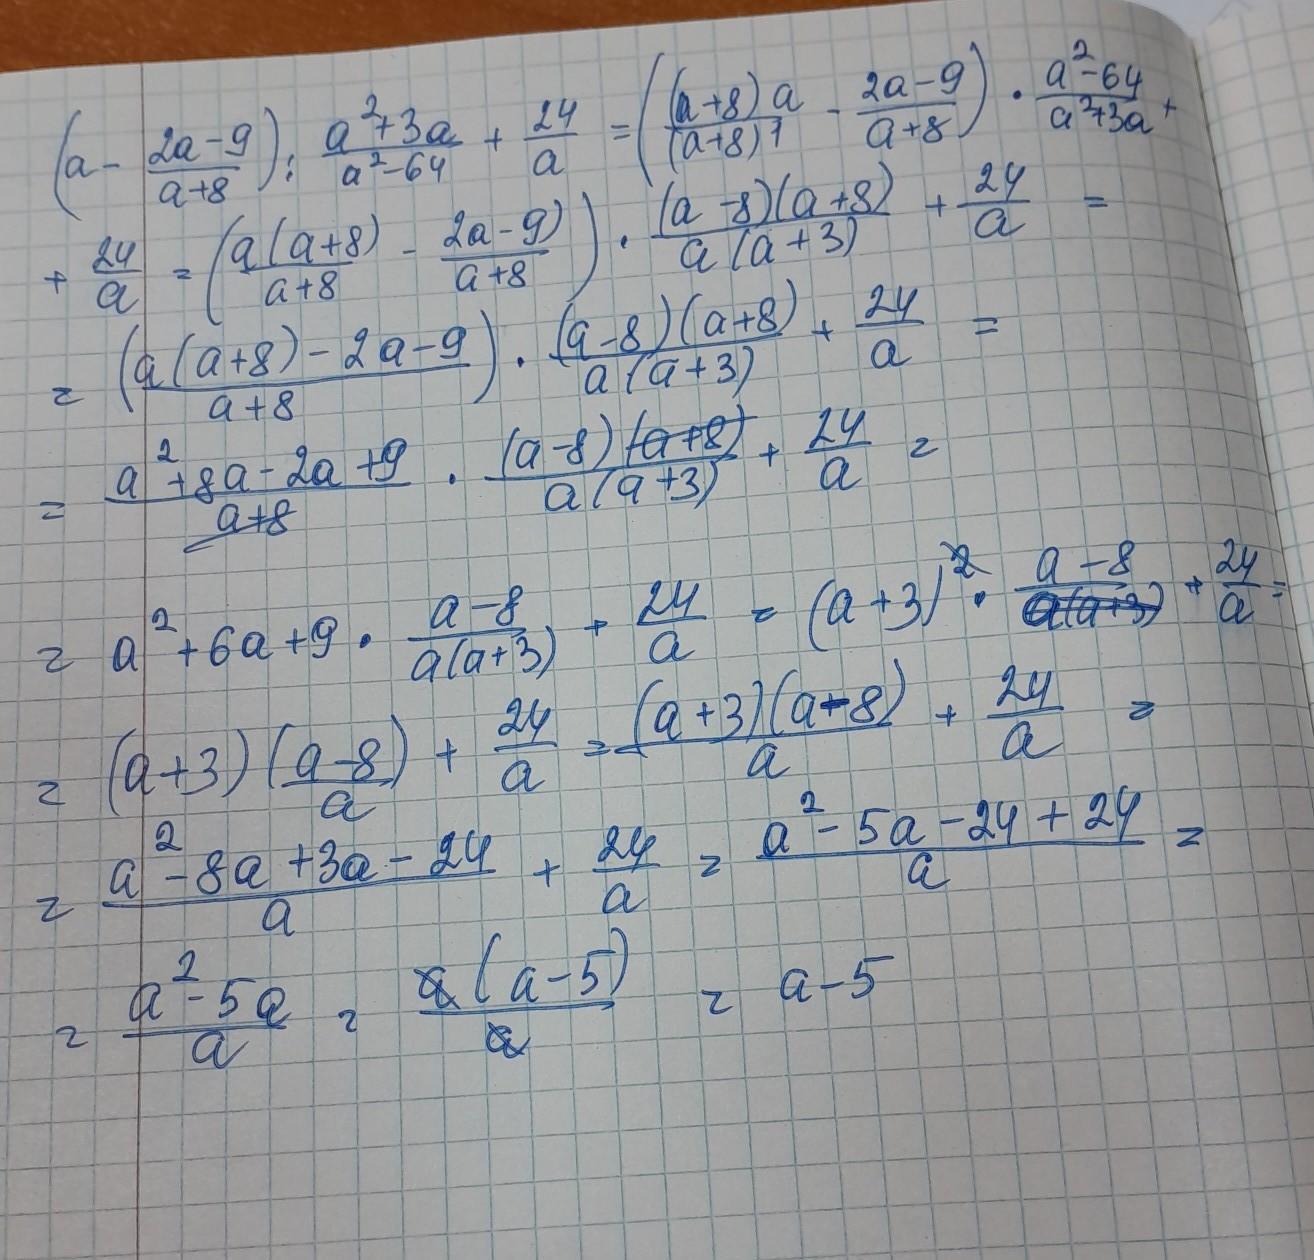 (a - \frac{2a-9}{a+8}) : \frac{a^2+3a}{a^2-64} + \frac{24}{a} = (\frac{(a+8)a}{(a+8)1} - \frac{2a-9}{a+8}) \cdot \frac{a^2-64}{a^2+3a} +
+ \frac{24}{a} = (\frac{a(a+8)}{a+8} - \frac{2a-9)}{a+8}) \cdot \frac{(a-8)(a+8)}{a(a+3)} + \frac{24}{a} =
= (\frac{a(a+8)-2a-9}{a+8}) \cdot \frac{(a-8)(a+8)}{a(a+3)} + \frac{24}{a} =
= \frac{a^2+8a-2a+9}{a+8} \cdot \frac{(a-8)(a+8)}{a(a+3)} + \frac{24}{a} =
= a^2+6a+9 \cdot \frac{a-8}{a(a+3)} + \frac{24}{a} = (a+3)^2 \cdot \frac{a-8}{a(a+3)} + \frac{24}{a} =
= (a+3)(\frac{a-8}{a}) + \frac{24}{a} = \frac{(a+3)(a-8)}{a} + \frac{24}{a} =
= \frac{a^2-8a+3a-24}{a} + \frac{24}{a} = \frac{a^2-5a-24+24}{a} =
= \frac{a^2-5a}{a} = \frac{a(a-5)}{a} = a-5